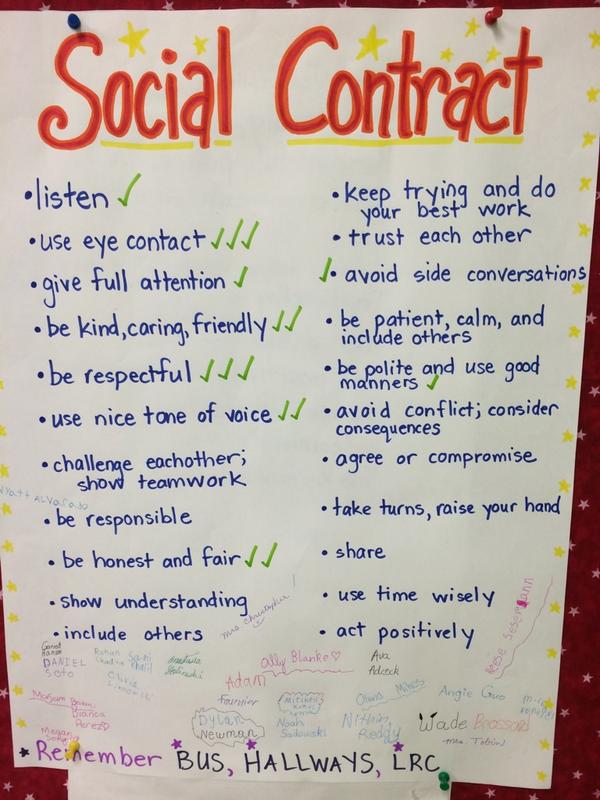 Social Contract
• listen ✓
• use eye contact ✓✓✓
• give full attention ✓
• be kind, caring, friendly ✓✓
• be respectful ✓✓✓
• use nice tone of voice ✓✓
• challenge eachother;
show teamwork
• be responsible
• be honest and fair ✓✓
• show understanding
• include others
• keep trying and do
your best work
• trust each other
✓• avoid side conversations
• be patient, calm, and
include others
• be polite and use good
manners ✓
• avoid conflict; consider
consequences
• agree or compromise
• take turns, raise your hand
• share
• use time wisely
• act positively
DANIEL
Soto
Ally Blanke♡
Ava
Adam
Angie Guo
Bianca
Perez
Dylan
Newman
Noah
Nithin
Reddy
Wade
Megan
Remember BUS, HALLWAYS, LRC